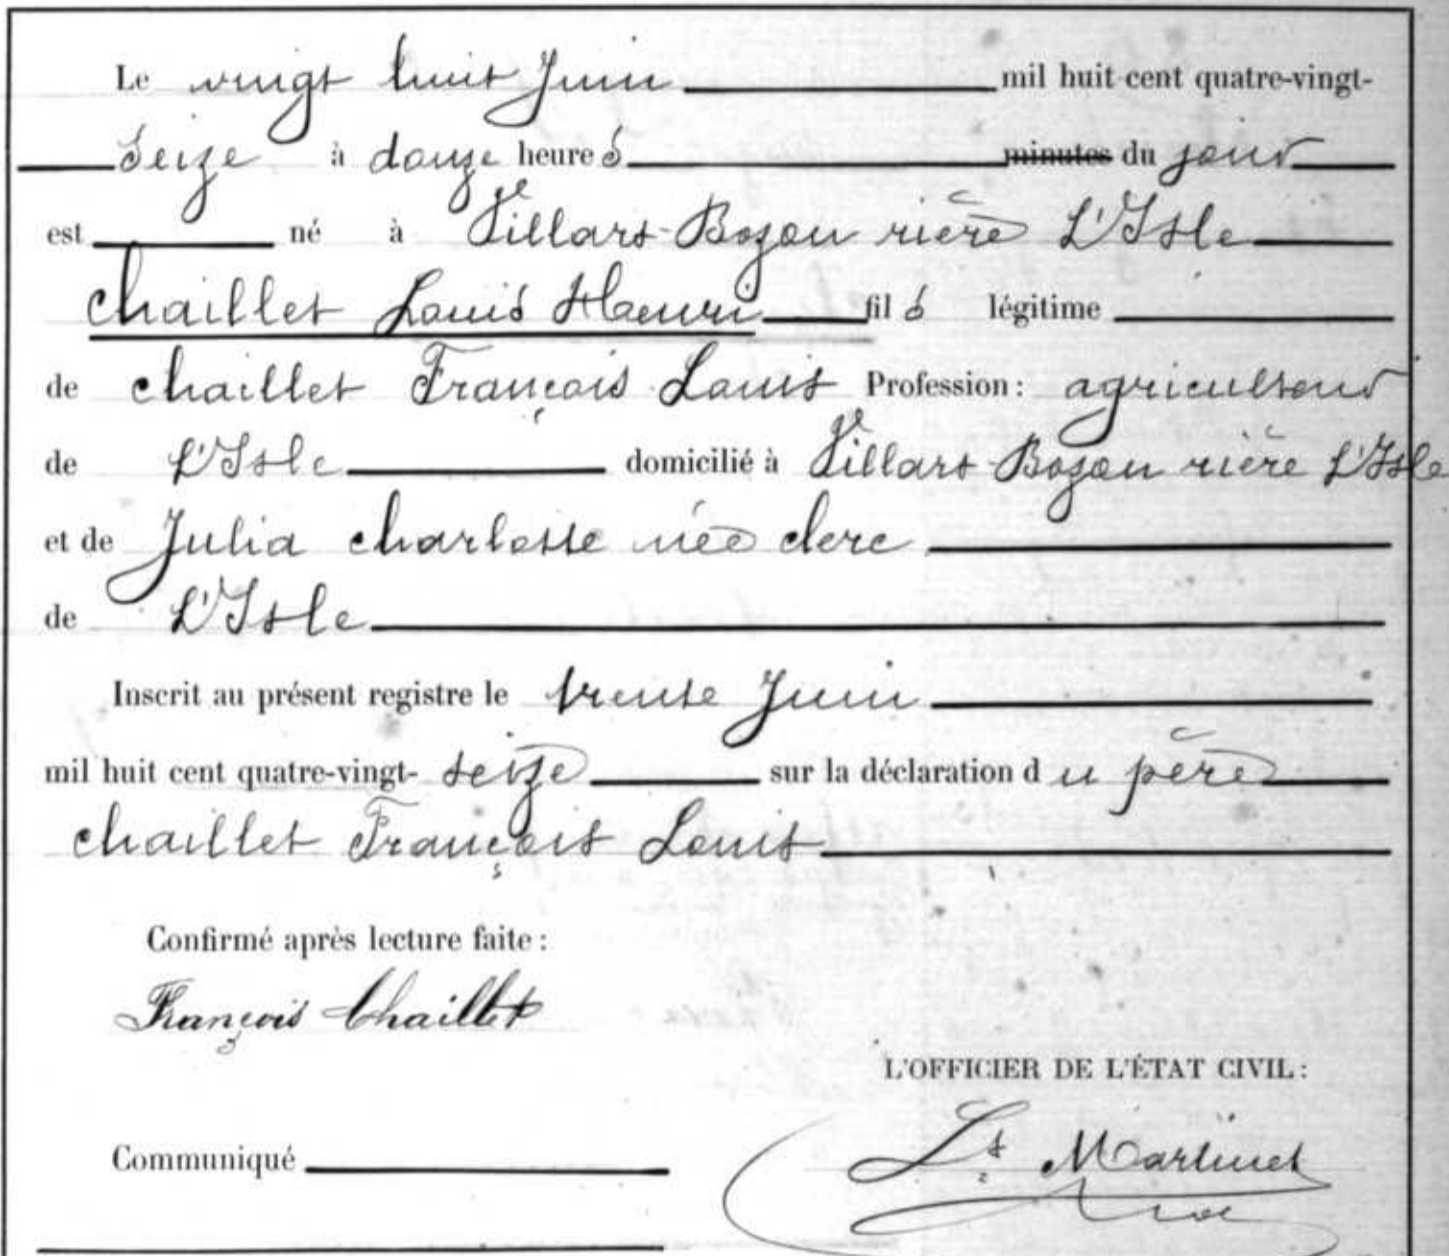 Le vingt huit Juin mil huit cent quatre-vingt-
seize à douze heures minutes du jour
est né à Villars-Bozon rière L'Isle
Chaillet Louis Henri fils légitime
de Chaillet François Louis Profession: agriculteur
de L'Isle domicilié à Villars-Bozon rière L'Isle
et de Julia Charlotte née Clerc
de L'Isle
Inscrit au présent registre le trente Juin
mil huit cent quatre-vingt-seize sur la déclaration du père
Chaillet François Louis
Confirmé après lecture faite:
François Chaillet
L'OFFICIER DE L'ÉTAT CIVIL:
Ls Martinet
Communiqué